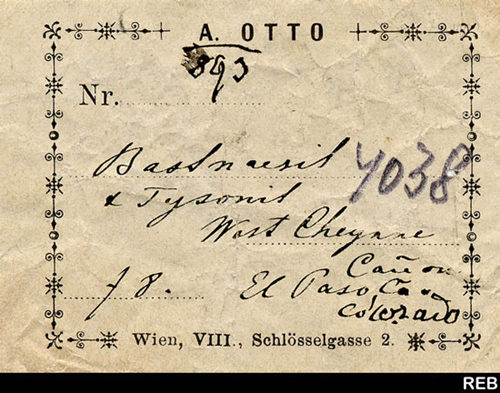 A. OTTO
893
Nr.
Bastnaesit
4038
& Tysonit
West Cheynne
Cañon
f 8.
El Paso Co.
Colorado
Wien, VIII., Schlösselgasse 2.
REB